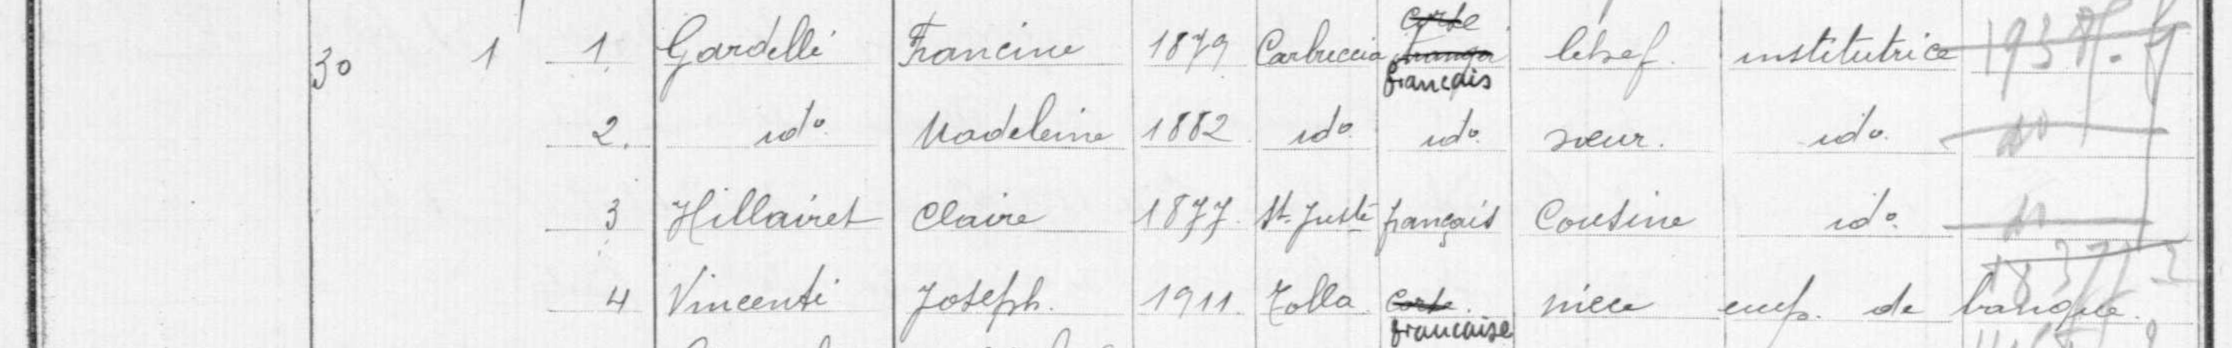 30 1 1. Gardelli Francine 1879 Carbuccia corse français lchef. institutrice
2. idº Madeleine 1882 idº idº sœur. idº
3 Hillairet Claire 1877 St. Juste français Cousine idº
4 Vincenti Joseph. 1911 Tolla corse française niece emp. de banque.